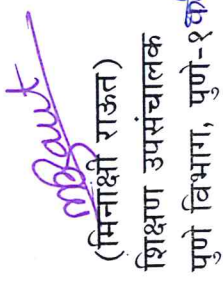 (मिनाक्षी राऊत)
शिक्षण उपसंचालक
पुणे विभाग, पुणे-१